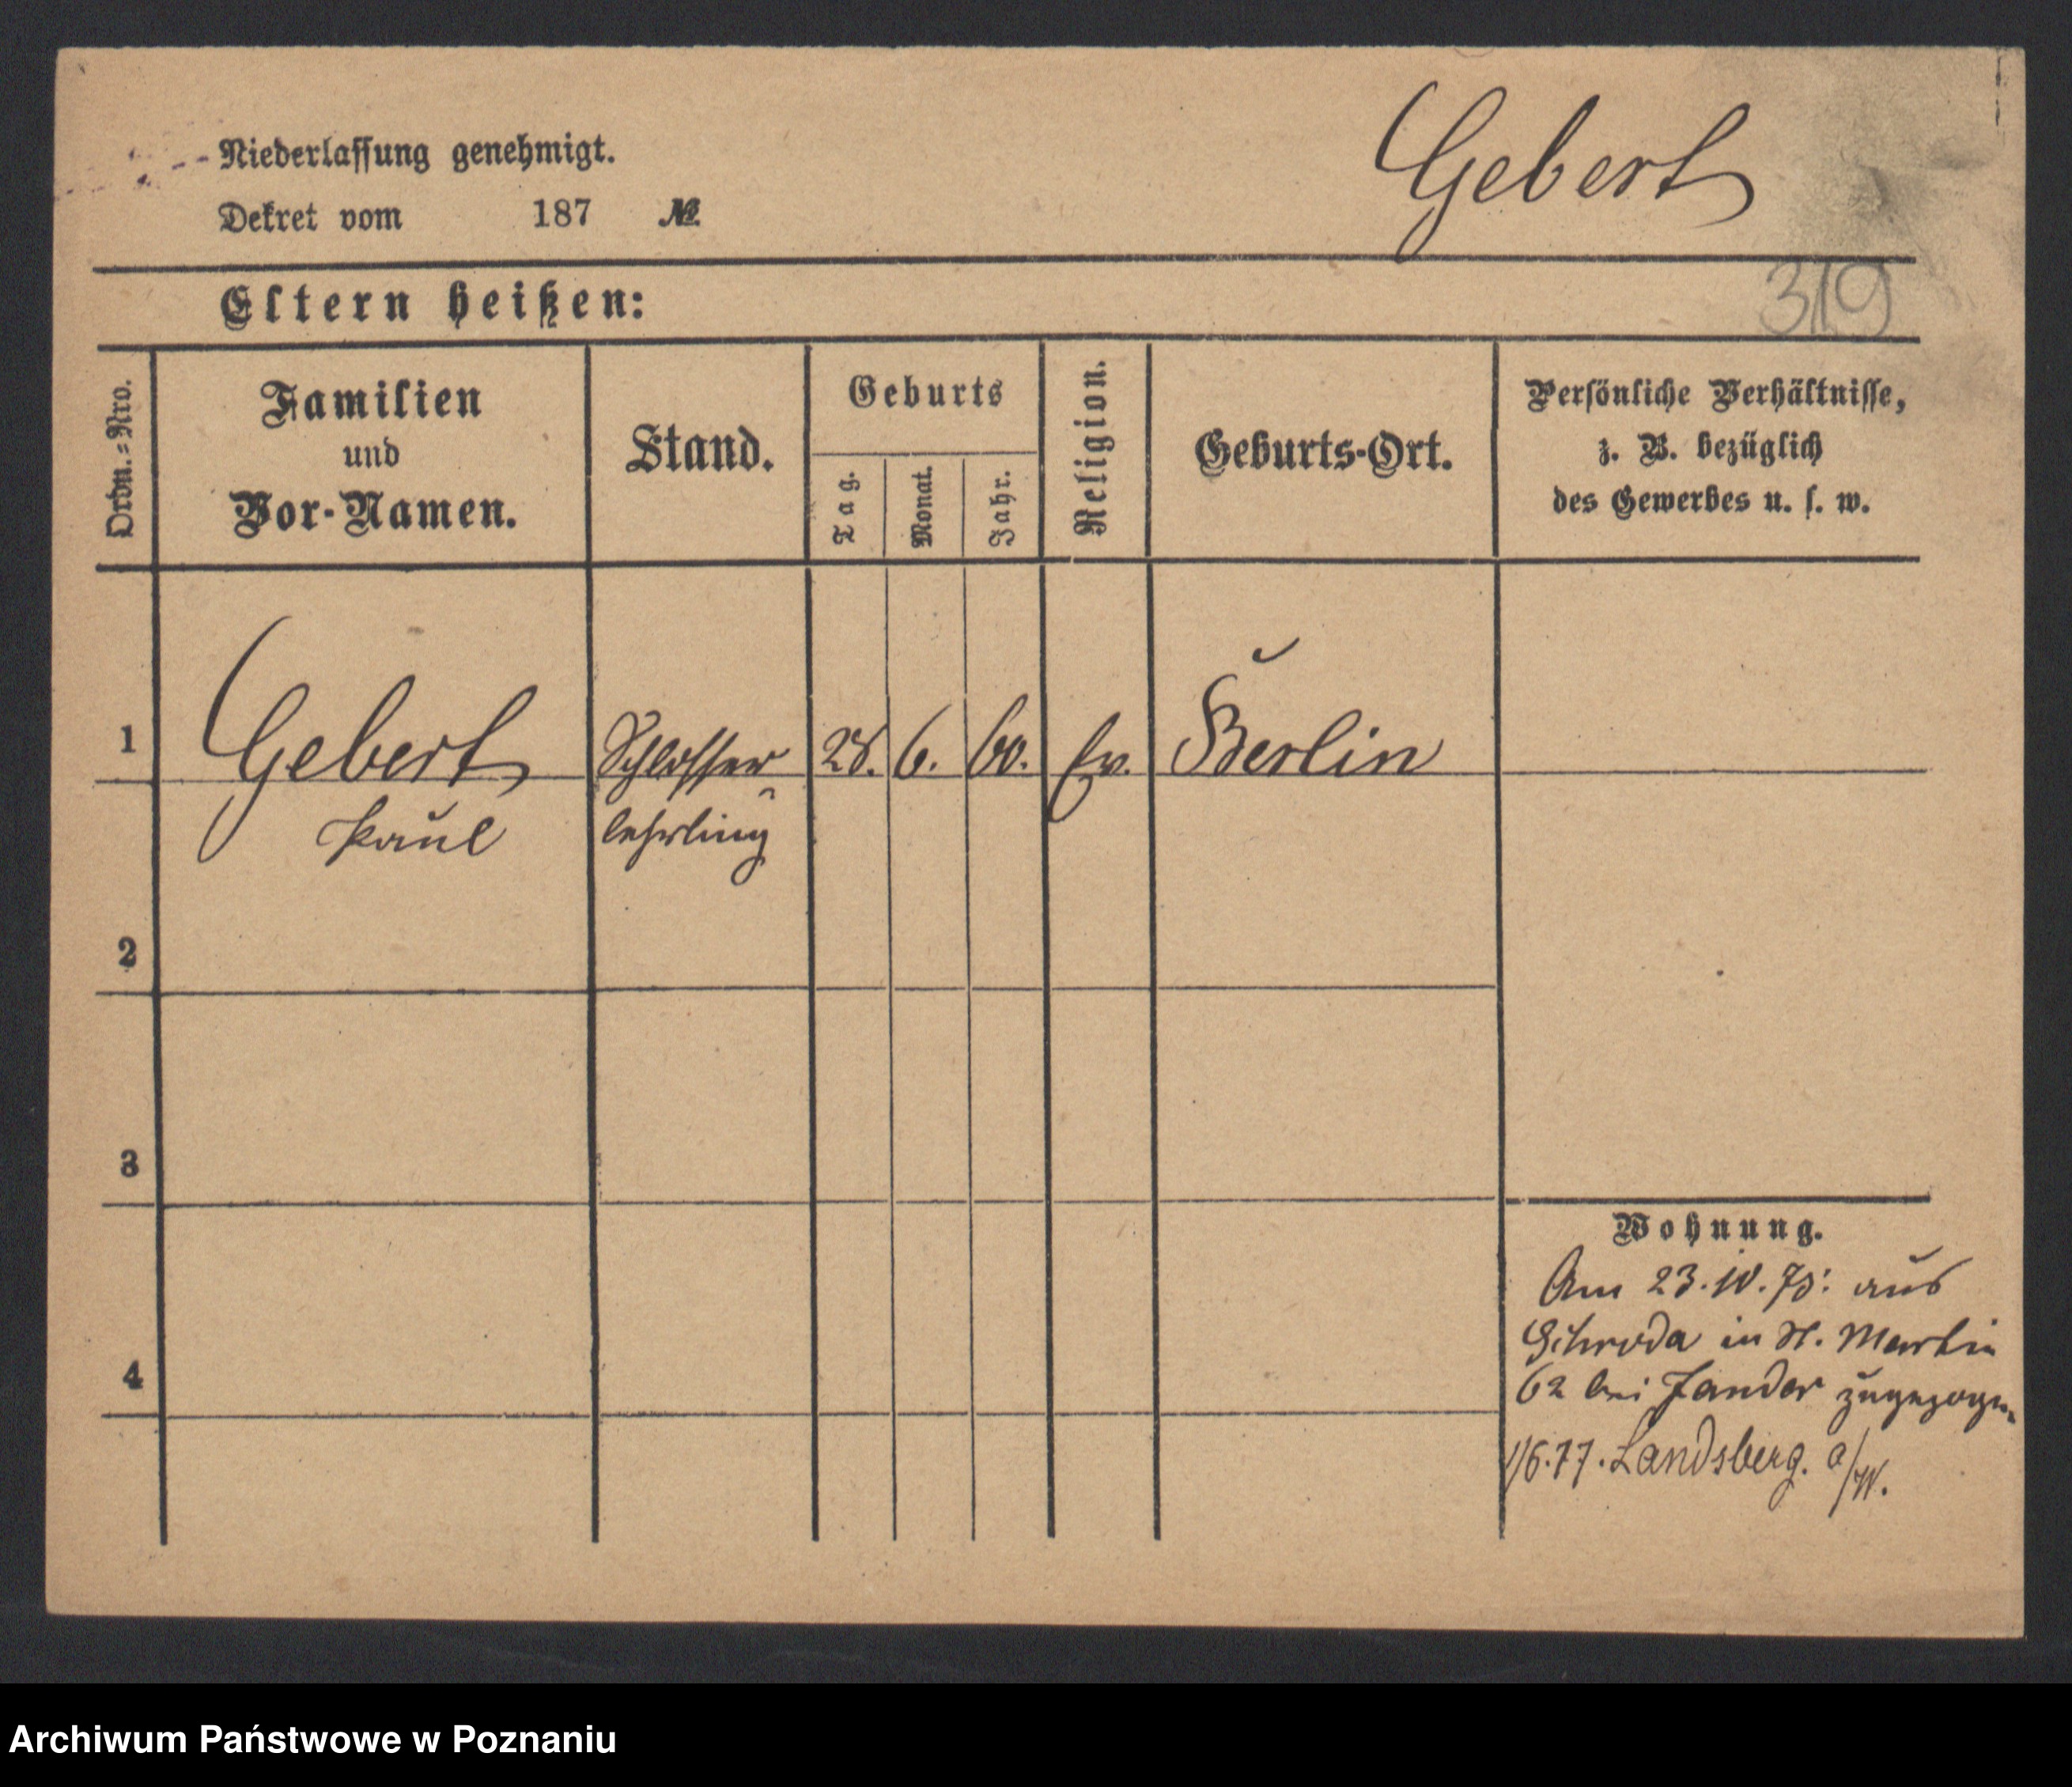 Gebert
Niederlassung genehmigt.
Dekret vom 187 №
Eltern heißen:
319
Ordn.-Nro.
Familien
und
Vor-Namen.
Stand.
Geburts
Tag.
Monat.
Jahr.
Religion.
Geburts-Ort.
Persönliche Verhältnisse,
z. B. bezüglich
des Gewerbes u. s. w.
1 Gebert Schlosser 28. 6. 60. Ev. Berlin
Paul lehrling
2
3
4
Wohnung.
Am 23. IV. 75: aus
Schroda in St. Martin
62 bei Zander zugezogen
1/6.77. Landsberg. a/W.
Archiwum Państwowe w Poznaniu